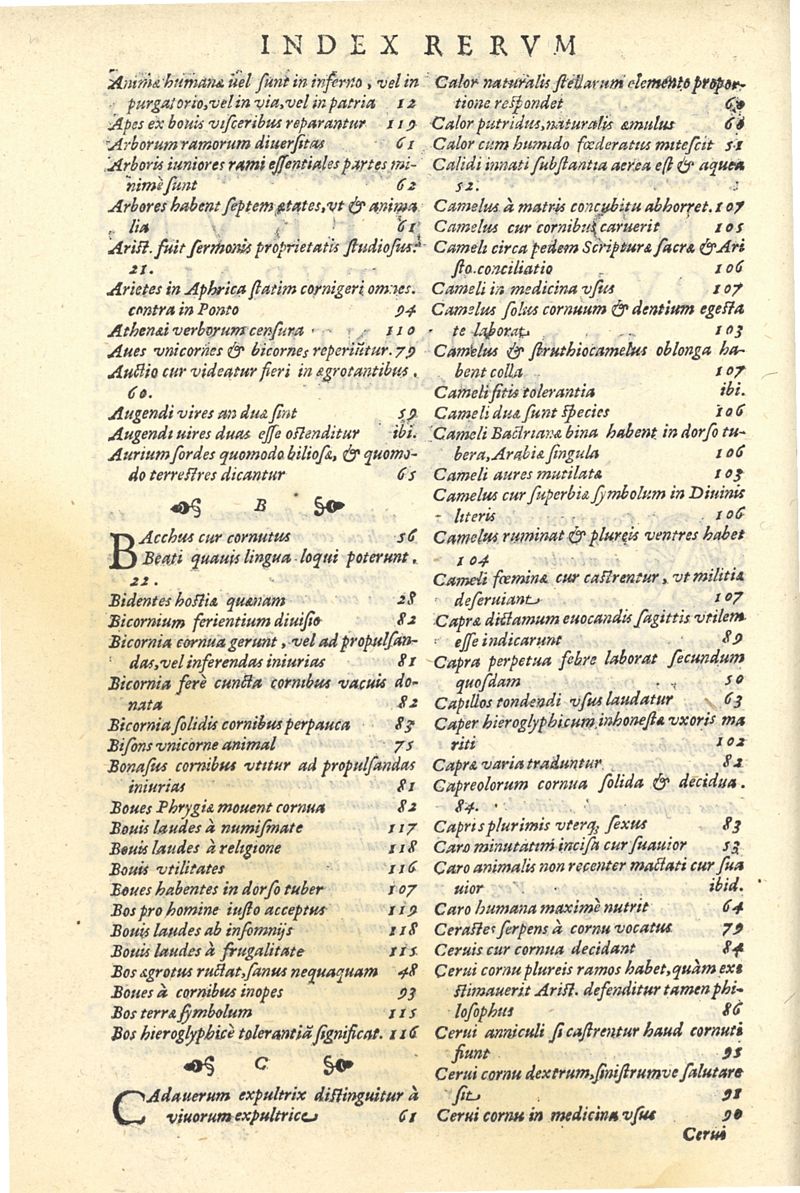 INDEX RERVM
Animæ humanæ uel sunt in inferno, vel in
purgatorio, vel in via, vel in patria 12
Apes ex bouis visceribus reparantur 119
Arborum ramorum diuersitas 61
Arboris iuniores rami essentiales partes mi-
nimè sunt 62
Arbores habent septem ætates, vt & anima
lia 61
Arist. fuit sermonis proprietatis studiosus.
21.
Arietes in Aphrica statim cornigeri omnes.
contra in Ponto 94
Athenæi verborum censura 110
Aues vnicornes & bicornes reperiũtur. 79
Auctio cur videatur fieri in ægrotantibus.
60.
Augendi vires an duæ sint 59
Augendi uires duas esse ostenditur ibi.
Aurium sordes quomodo biliosæ, & quomo-
do terrestres dicantur 65
B
BAcchus cur cornutus 56
Beati quauis lingua loqui poterunt.
22.
Bidentes hostiæ quænam 28
Bicornium ferientium diuisio 82
Bicornia cornua gerunt, vel ad propulsan-
das, vel inferendas iniurias 81
Bicornia ferè cuncta cornibus vacuis do-
nata 82
Bicornia solidis cornibus perpauca 83
Bisons vnicorne animal 75
Bonasus cornibus vtitur ad propulsandas
iniurias 81
Boues Phrygiæ mouent cornua 82
Bouis laudes à numismate 117
Bouis laudes à religione 118
Bouis vtilitates 116
Boues habentes in dorso tuber 107
Bos pro homine iusto acceptus 119
Bouis laudes ab insomnijs 118
Bouis laudes à frugalitate 115
Bos ægrotus ructat, sanus nequaquam 48
Boues à cornibus inopes 93
Bos terræ symbolum 115
Bos hieroglyphicè tolerantiã significat. 116
C
CAdauerum expultrix distinguitur à
viuorum expultrice 61
Calor naturalis stellarum elemento propor-
tione respondet 60
Calor putridus, naturalis æmulus 60
Calor cum humido fœderatus mitescit 51
Calidi innati substantia aerea est & aquea
52.
Camelus à matris concubitu abhorret. 107
Camelus cur cornibus caruerit 105
Cameli circa pedem Scripturæ sacræ & Ari
sto. conciliatio 106
Cameli in medicina vsus 107
Camelus solus cornuum & dentium egesta
te laborat 103
Camelus & struthiocamelus oblonga ha-
bent colla 107
Cameli sitis tolerantia ibi.
Cameli duæ sunt species 106
Cameli Bactrianæ bina habent in dorso tu-
bera, Arabiæ singula 106
Cameli aures mutilatæ 103
Camelus cur superbiæ symbolum in Diuinis
literis 106
Camelus ruminat & plureis ventres habet
104
Cameli fœminæ cur castrentur, vt militiæ
deseruiant 107
Capræ dictamum euocandis sagittis vtilem
esse indicarunt 89
Capra perpetua febre laborat secundum
quosdam 50
Capillos tondendi vsus laudatur 63
Caper hieroglyphicum inhonestæ vxoris ma
riti 102
Capræ varia traduntur 82
Capreolorum cornua solida & decidua.
84.
Capris plurimis vterq; sexus 83
Caro minutatim incisa cur suauior 53
Caro animalis non recenter mactati cur sua
uior ibid.
Caro humana maximè nutrit 64
Cerastes serpens à cornu vocatus 79
Ceruis cur cornua decidant 84
Cerui cornu plureis ramos habet, quàm exi
stimauerit Arist. defenditur tamen phi-
losophus 86
Cerui anniculi si castrentur haud cornuti
fiunt 95
Cerui cornu dextrum, sinistrumve salutare
sit 91
Cerui cornu in medicina vsus 90
Cerui